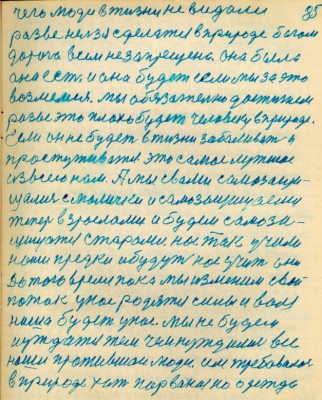 чего люди в жизни не видали 35
разве нельзя сделать в природе богом
дорога всем не запрещена, она была
она есть, и она будет если мы за это
возмемся. мы обязательно достигнем
разве это плохо будет человеку в природе.
Если он не будет в жизни заболивать и
простуживатся это самое лутшое
из всего нам. А мы с вами самозащи-
щались с молички и самозащищаемся
тепер взрослами и будем самоза-
щищатся старами, нас так учили
наши предки и будут нас учит они
до того время пока мы изменим свой
поток у нас родятся силы и воля
наша будет у нас. Мы не будем
нуждатся тем чем нуждались все
наши прошившии люди. им требовалос
в природе хат порваная но одежда